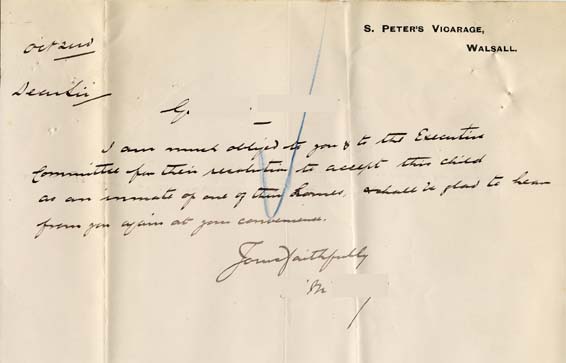 S. PETER'S VICARAGE,
WALSALL.
Oct 2nd
Dear Sir
G.
I am much obliged to you & to the Executive
Committee for their resolution to accept this child
as an inmate of one of their Homes, & shall be glad to hear
from you again at your convenience.
Yours faithfully